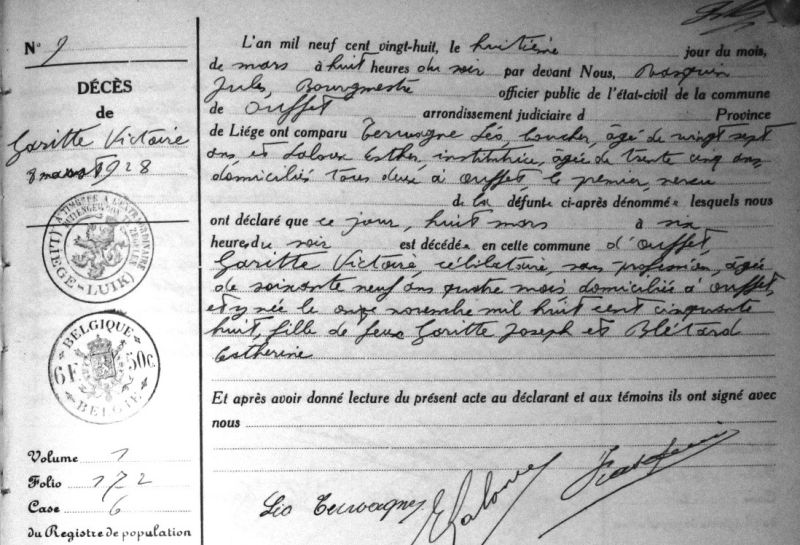 N° 9
DÉCÈS
de
Garitte Victoire
8 mars 1928
TIMBRE A L'EXTRAORDINAIRE
(LIÈGE-LUIK)
BELGIQUE
6F 50c
BELGIË
Volume 1
Folio 172
Case 6
du Registre de population
L'an mil neuf cent vingt-huit, le huitième jour du mois,
de mars à huit heures du soir par devant Nous,
Jules, Bourgmestre officier public de l'état-civil de la commune
de Ouffet arrondissement judiciaire d Province
de Liége ont comparu Terwagne Léo, coucher, âgé de vingt sept
ans, et Laloux Esther, institutrice, âgée de trente cinq ans,
domiciliés tous deux à Ouffet, le premier, neveu
de la défunte ci-après dénommée lesquels nous
ont déclaré que ce jour, huit mars à six
heures du soir est décédée en cette commune d'Ouffet,
Garitte Victoire, célibataire, sans profession, âgée
de soixante neuf ans quatre mois domiciliée à Ouffet,
et y née le onze novembre mil huit cent cinquante
huit, fille de feux Garitte Joseph et Blétard
Estherine
Et après avoir donné lecture du présent acte au déclarant et aux témoins ils ont signé avec
nous
Léo Terwagne E Laloux